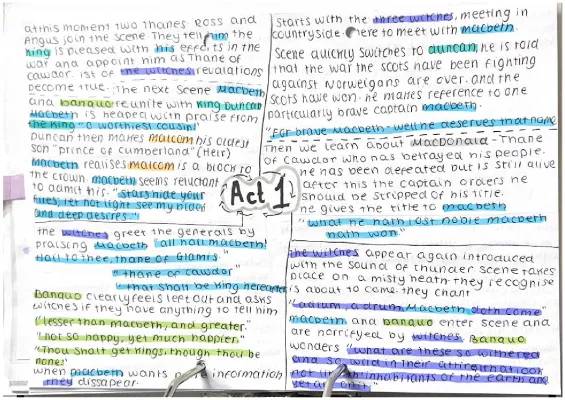 Act 1
starts with the three witches, meeting in
countryside. There to meet with macbeth
Scene quickly switches to duncan, he is told
that the war the scots have been fighting
against Norweigans are over. and the
scots have won. he makes reference to one
particularly brave captain macbeth.
"For brave macbeth - well he deserves that name
Then we learn about Macdonald - Thane
of Cawdor who has betrayed his people.
he has been defeated but is still alive
after this the captain orders he
should be stripped of his title.
he gives the title to macbeth
"what he hath lost noble macbeth
hath won"
the witches appear again introduced
with the sound of thunder scene takes
place on a misty heath they recognise
is about to come. they chant
"a drum, a drum, Macbeth doth come"
macbeth and banquo enter scene and
are horrifyed by witches. Banquo
wonders "what are these so withered
and so wild in their attire, that look
not like th inhabitants of the earth and
yet are on it."
the witches greet the generals by
praising macbeth "all hail macbeth!
Hail to thee, thane of Glamis"
"thane of cawdor"
"that shall be king hereafter
Banquo clearly feels left out and asks
witches if they have anything to tell him
"lesser than macbeth, and greater."
"not so happy, yet much happier."
"Thou shalt get kings, though thou be
none:"
when macbeth wants more information
they dissapear.
at this moment two thanes Ross and
Angus join the scene They tell him the
king is pleased with his efforts in the
war and appoint him as Thane of
cawdor. 1st of the witches revalations
become true. The next scene macbeth
and banquo reunite with king Duncan
Macbeth is heaped with praise from
the king "O worthiest cousin!"
Duncan then makes malcom his oldest
son "prince of cumberland" (Heir)
Macbeth realises malcom is a block to
the crown. macbeth seems reluctant
to admit this. "stars hide your
fires, let not light see my black
and deep desires."